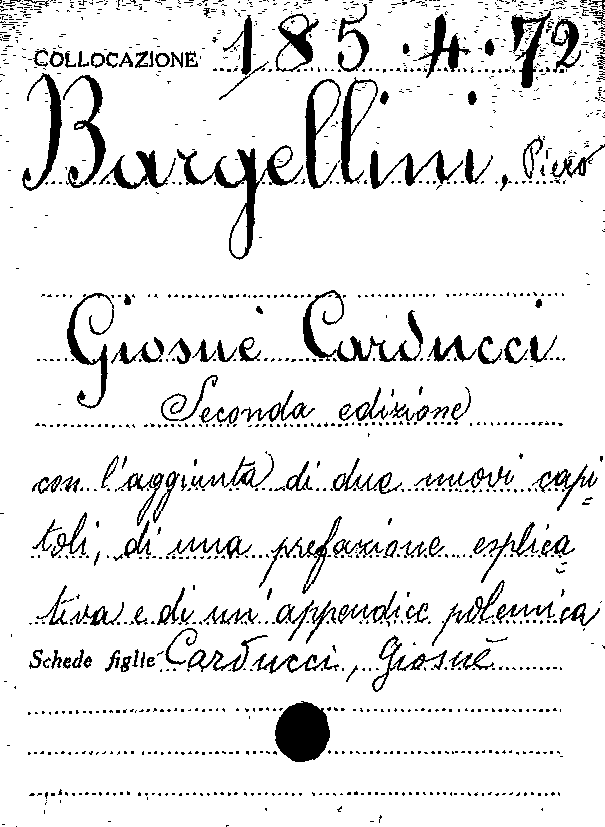 COLLOCAZIONE 185.4.72
Bargellini, Piero
Giosuè Carducci
Seconda edizione
con l'aggiunta di due nuovi capi
toli, di una prefazione esplica
tiva e di un'appendice polemica
Schede figlie Carducci, Giosuè